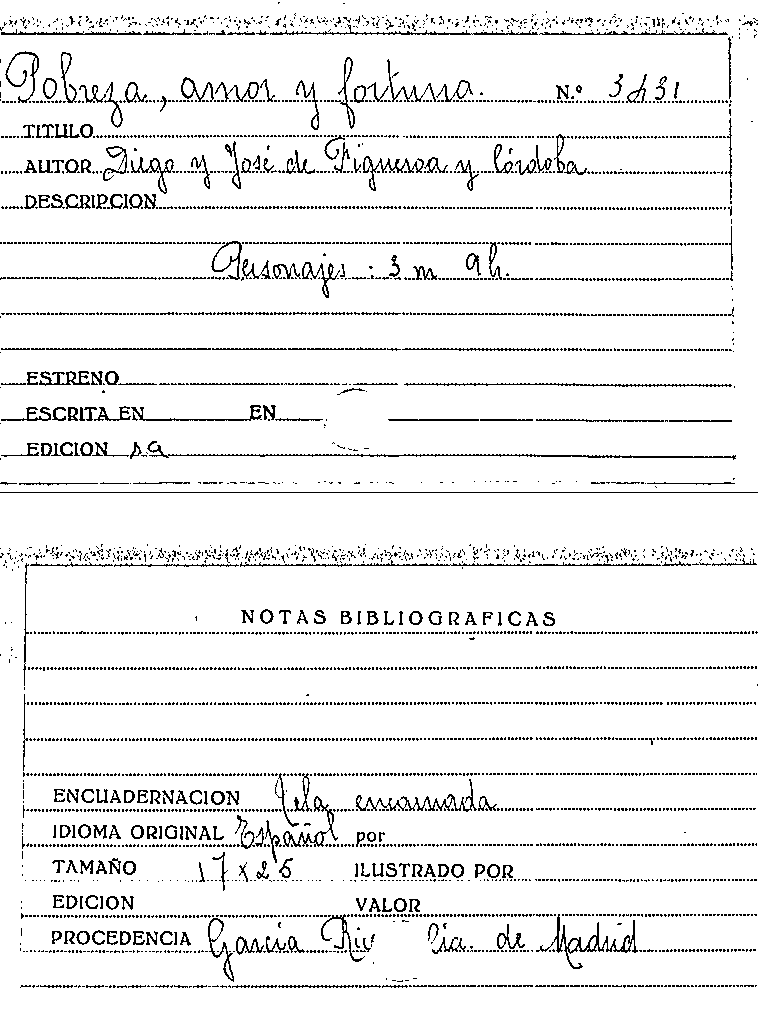 Pobreza, amor y fortuna. N.º 3431
TITULO
AUTOR Diego y José de Figueroa y Córdoba
DESCRIPCION
Personajes: 3 m 9 h.
ESTRENO
ESCRITA EN EN
EDICION sa
NOTAS BIBLIOGRAFICAS
ENCUADERNACION Tela encarnada
IDIOMA ORIGINAL Español por
TAMAÑO 17 x 25 ILUSTRADO POR
EDICION VALOR
PROCEDENCIA García Cia. de Madrid